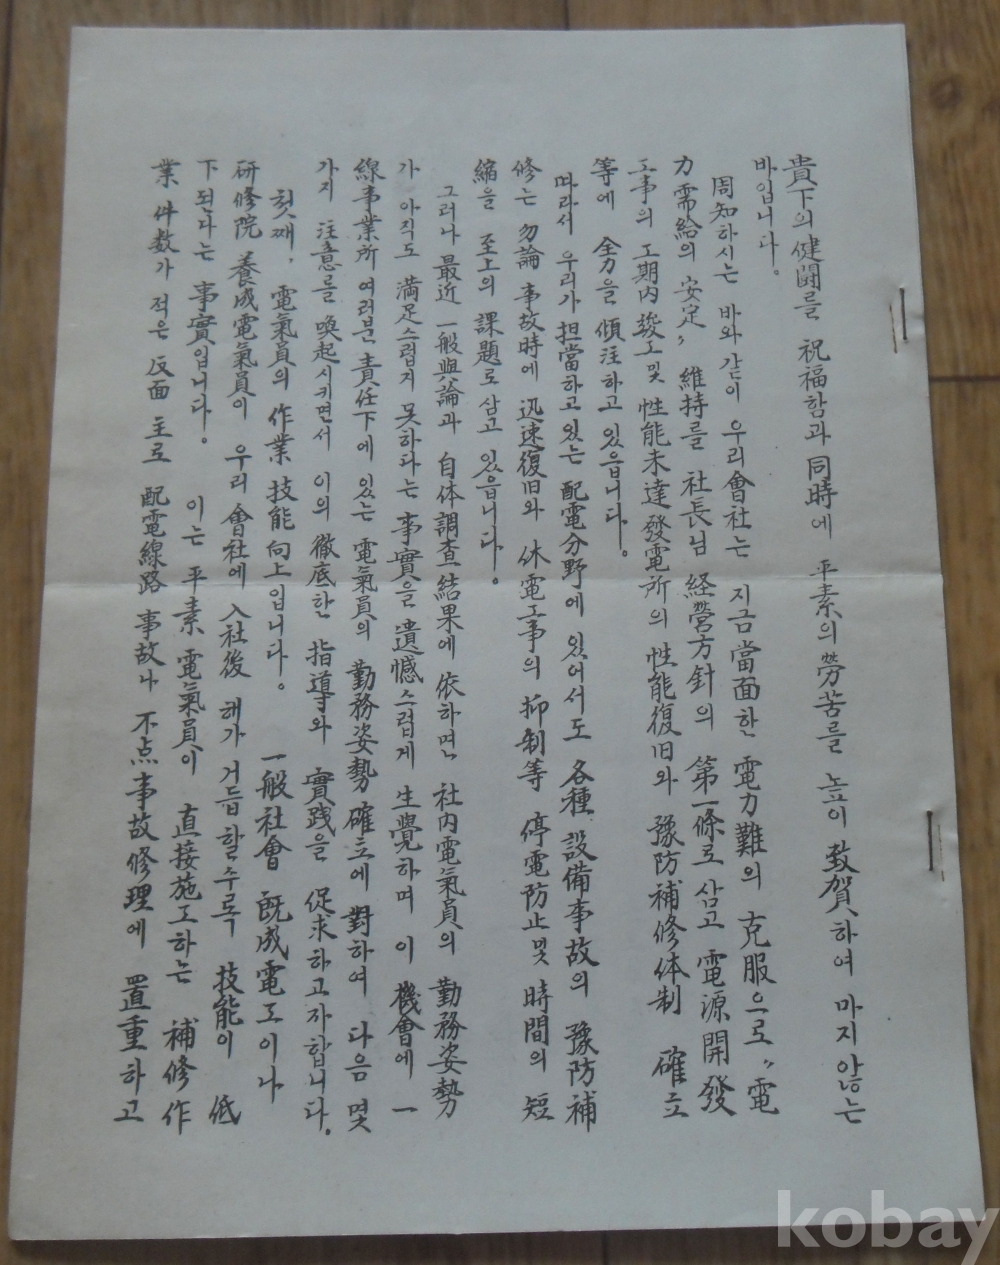 貴下의 健闘를 祝福함과 同時에 平素의 勞苦를 높이 致賀하여 마지않는
바입니다.
周知하시는 바와같이 우리會社는 지금當面한 電力難의 克服으로 〃電
力需給의 安定〃 維持를 社長님 経營方針의 第一條로 삼고 電源開發
工事의 工期内竣工및 性能未達發電所의 性能復旧와 豫防補修体制 確立
等에 全力을 傾注하고 있읍니다.
따라서 우리가担當하고있는 配電分野에 있어서도 各種 設備事故의 豫防補
修는 勿論 事故時에 迅速復旧와 休電工事의 抑制等 停電防止및 時間의 短
縮을 至上의 課題로삼고 있읍니다.
그러나 最近 一般與論과 自体調查結果에 依하면 社内電氣員의 勤務姿勢
가 아직도 満足스럽지 못하다는 事實을 遺憾스럽게 生覺하며 이 機會에 一
線事業所 여러분 責任下에 있는 電氣員의 勤務姿勢 確立에 對하여 다음 몇
가지 注意를 喚起시키면서 이의 徹底한 指導와 實践을 促求하고자합니다.
첫째, 電氣員의 作業技能向上입니다. 一般社會 既成電工이나
研修院 養成電氣員이 우리 會社에 入社後 해가 거듭할수록 技能이 低
下된다는 事實입니다. 이는 平素 電氣員이 直接施工하는 補修作
業 件数가 적은 反面 主로 配電線路 事故나 不点事故修理에 置重하고
kobay